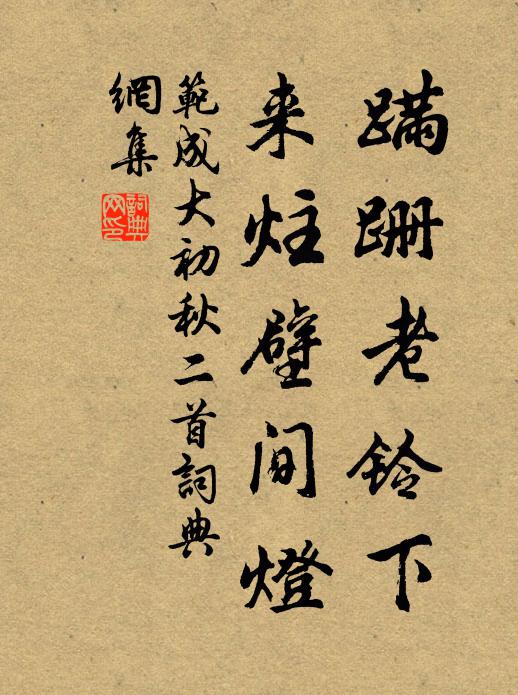 蹣跚老鈴下
来炷壁間燈
範成大初秋二首詞典
網集
詞典
网印